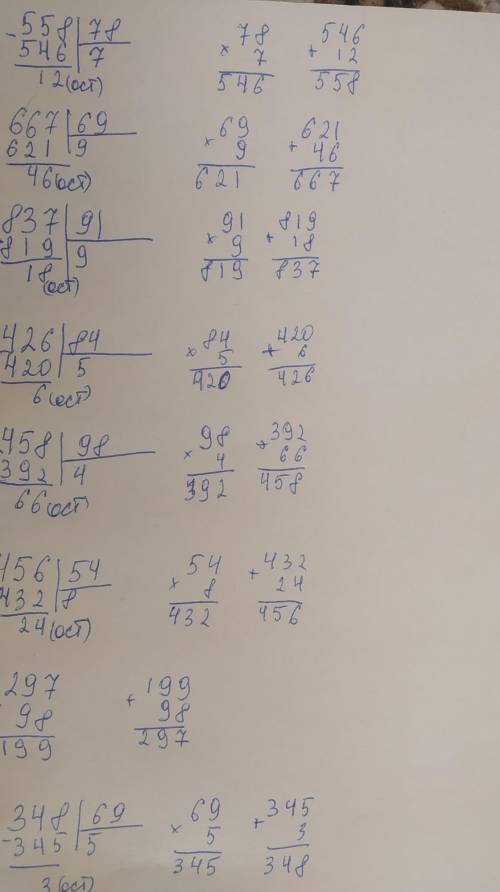 -558|78 78 546
546|7 × 7 + 12
12(ост) 546 558
667|69 69 621
621|9 × 9 + 46
46(ост) 621 667
837|91 91 819
819|9 × 9 + 18
18(ост) 819 837
426|84 84 420
420|5 × 5 + 6
6(ост) 420 426
458|98 98 392
392|4 × 4 + 66
66(ост) 392 458
456|54 54 432
432|8 × 8 + 24
24(ост) 432 456
297 199
98 + 98
199 297
348|69 69 345
-345|5 × 5 + 3
3(ост) 345 348